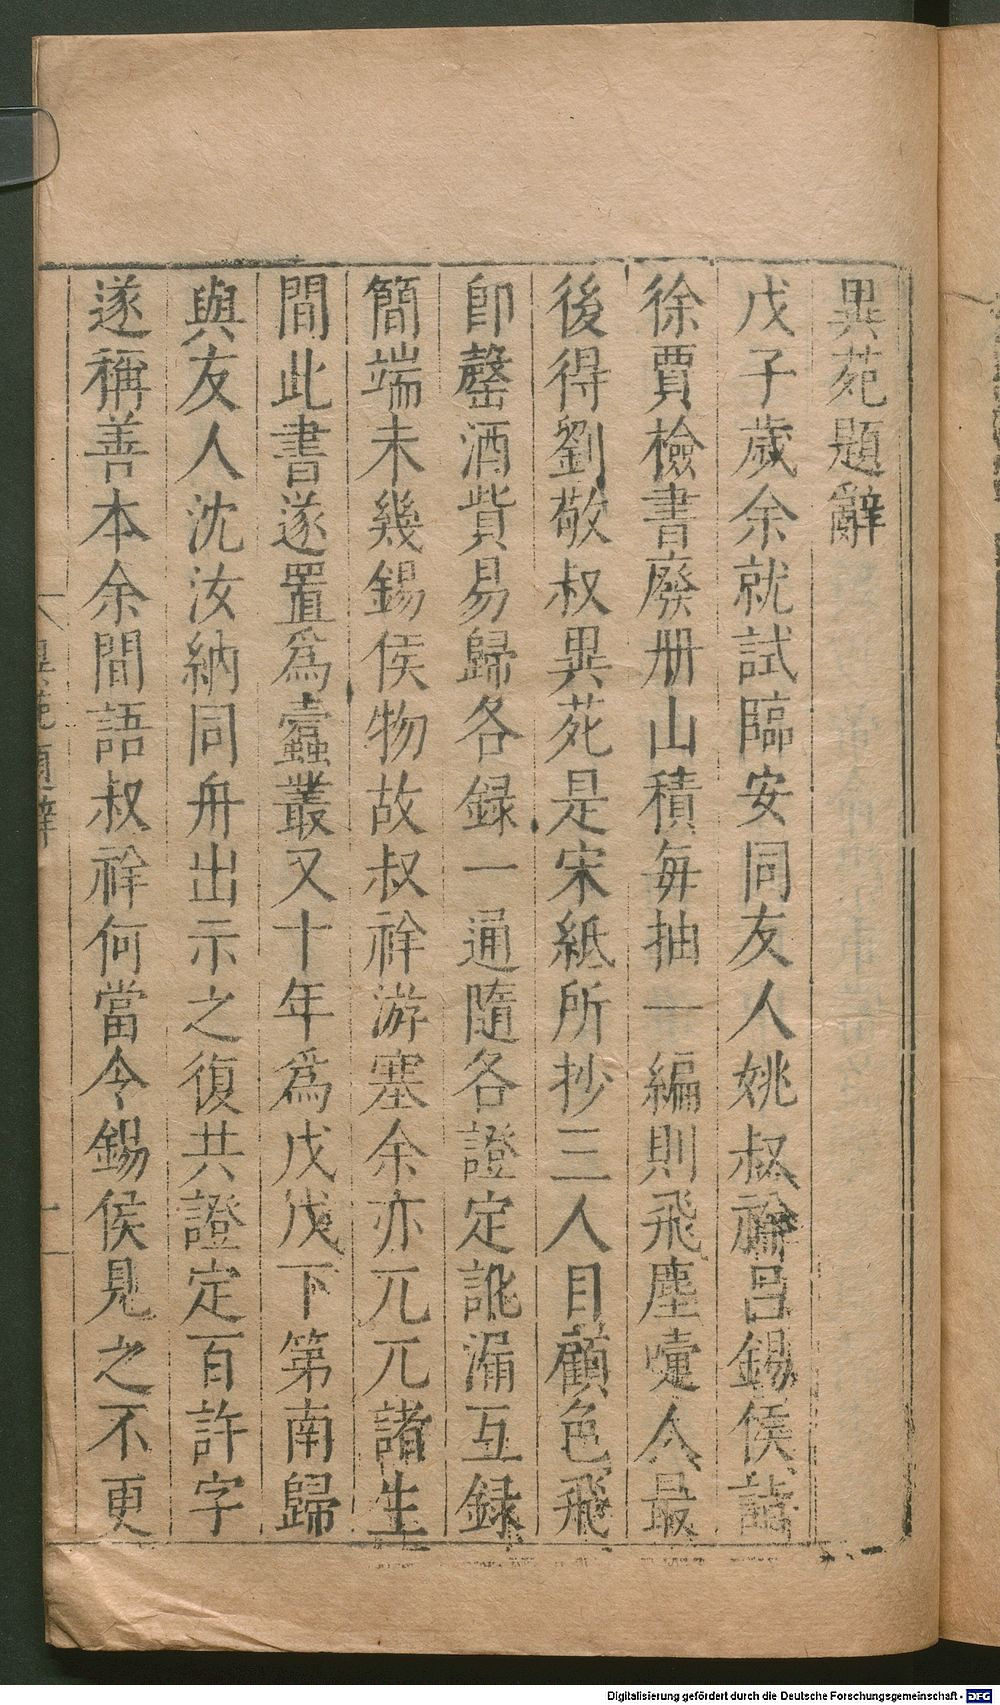 異苑題辭
戊子歲余就試臨安同友人姚叔祥呂錫侯詣
徐賈檢書廢册山積每抽一編則飛塵嚏人最
後得劉敬叔異苑是宋紙所抄三人目顧色飛
卽罄酒貲易歸各録一通隨各證定訛漏互録
簡端未幾錫侯物故叔祥游塞余亦兀兀諸生
間此書遂置爲蠧叢又十年爲戊戌下第南歸
與友人沈汝納同舟出示之復共證定百許字
遂稱善本余間語叔祥何當令錫侯見之不更
異苑題辭
一
Digitalisierung gefördert durch die Deutsche Forschungsgemeinschaft - DFG